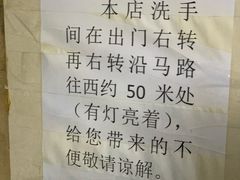 本店洗手
间在出门右转
再右转沿马路
往西约 50 米处
(有灯亮着),
给您带来的不
便敬请谅解。